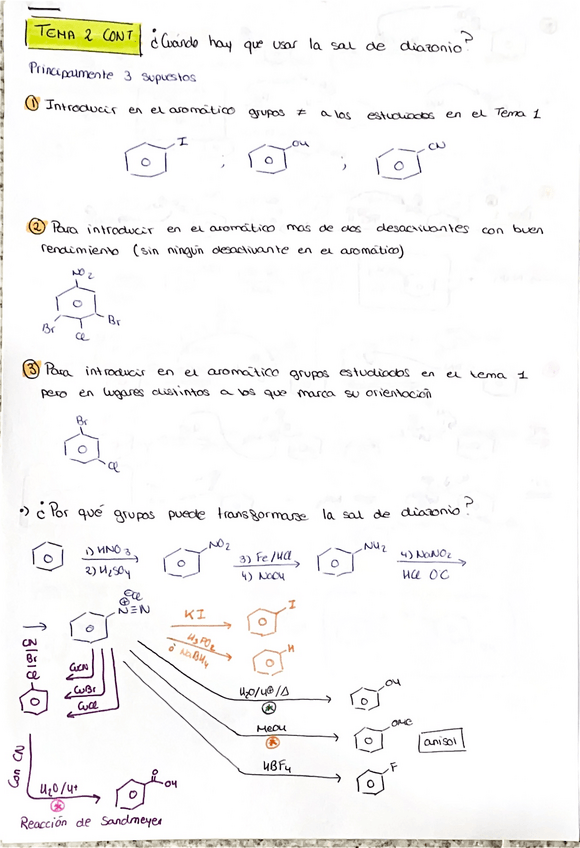 TEMA 2 CONT ¿Cuándo hay que usar la sal de diazonio?
Principalmente 3 supuestos
① Introducir en el aromático grupos ≠ a los estudiados en el Tema 1
I ; OH ; CN
② Para introducir en el aromático mas de dos desactivantes con buen
rendimiento (sin ningún desactivante en el aromático)
NO2
Br Br
Cl
③ Para introducir en el aromático grupos estudiados en el tema 1
pero en lugares distintos a los que marca su orientación
Br
Cl
•) ¿Por qué grupos puede transformarse la sal de diazonio?
1) HNO3 NO2 3) Fe/HCl NH2 4) NaNO2
2) H2SO4 4) NaOH HCl 0C
⊖Cl
⊕N≡N KI I
H3PO2 H
ó NaBH4
CN|Br|Cl CuCN
CuBr
CuCl
H2O/H⊕/Δ OH
MeOH OMe anisol
HBF4 F
Con CN H2O/H+ O OH
Reacción de Sandmeyer